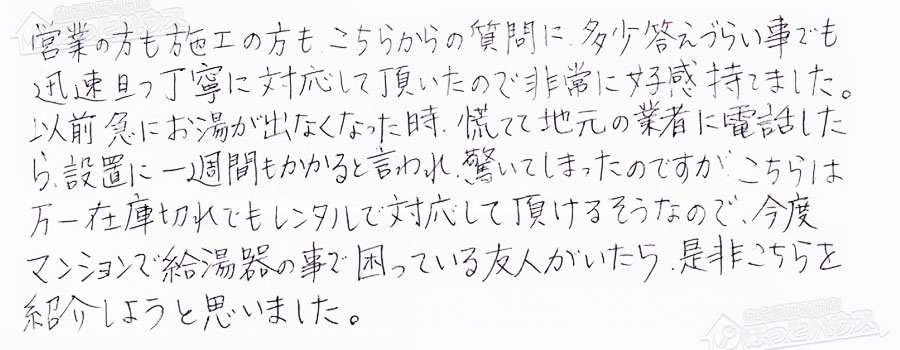 営業の方も施工の方も、こちらからの質問に、多少答えづらい事でも
迅速且つ丁寧に対応して頂いたので非常に好感持てました。
以前急にお湯が出なくなった時、慌てて地元の業者に電話した
ら、設置に一週間もかかると言われ、驚いてしまったのですが、こちらは
万一在庫切れでもレンタルで対応して頂けるそうなので、今度
マンションで給湯器の事で困っている友人がいたら、是非こちらを
紹介しようと思いました。